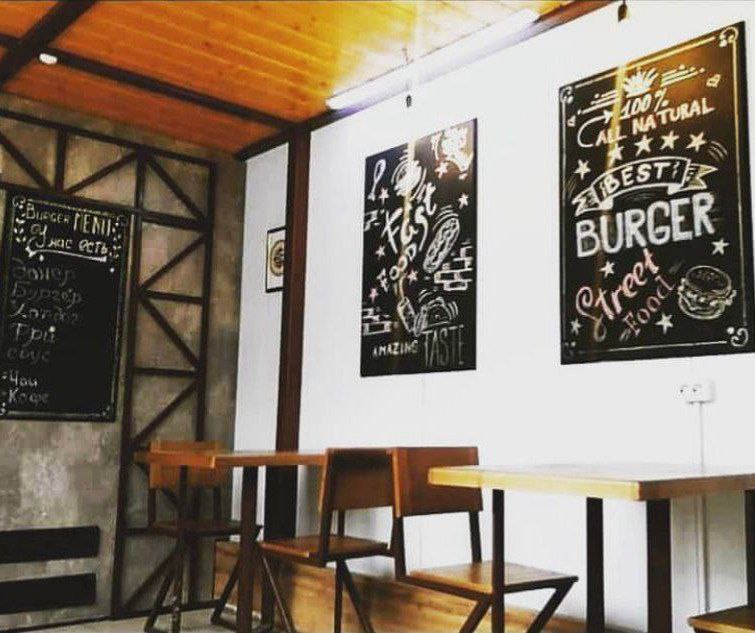 BURGER MENU
У нас есть
Донер
Бургер
Хотдог
Фри
соус
Чай
Кофе
Fast
FOOD
AMAZING TASTE
100%
ALL NATURAL
BEST
BURGER
Street
Food